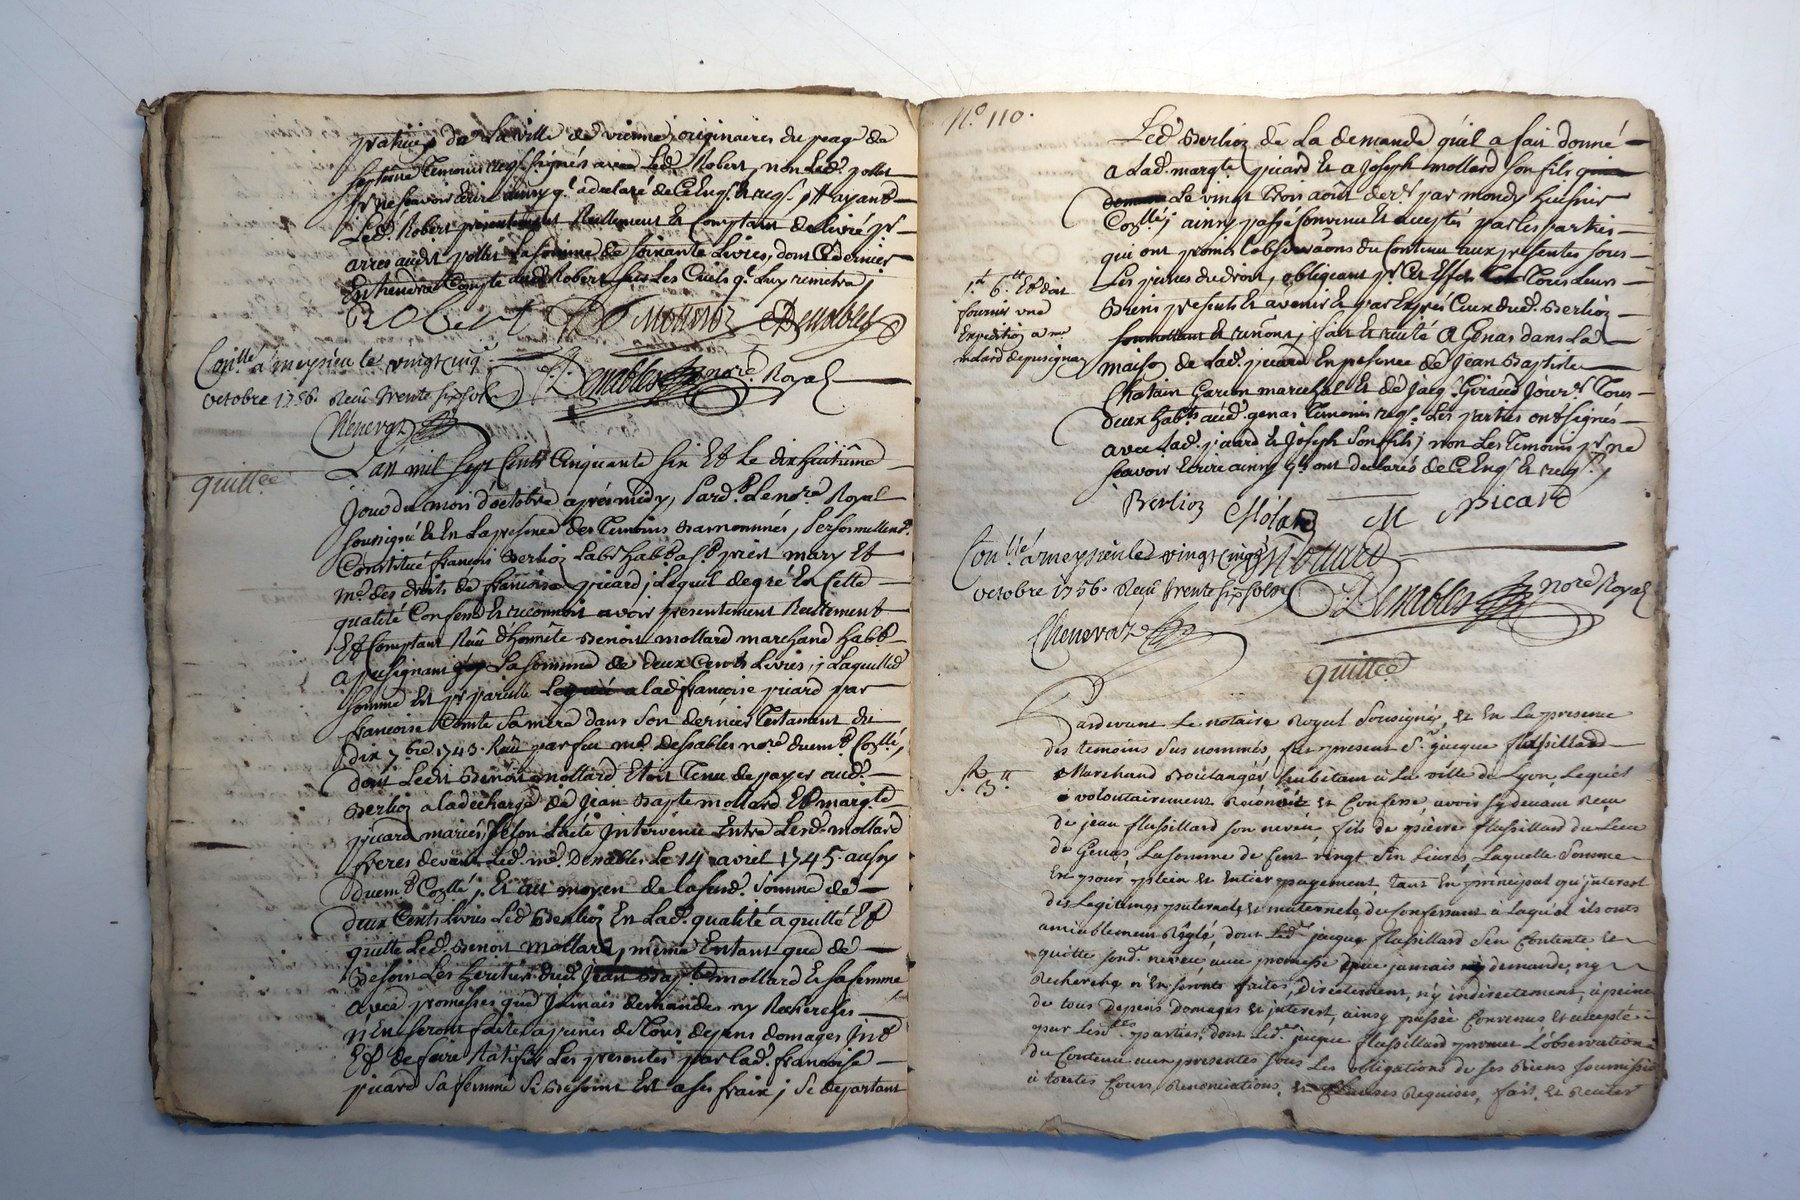 de La ville de vienne originaires du peage de
temoins req. signés avec Led. Robert, non Led. pollet
pr ne scavoir ecrire ainsy q. a declaré de Ce Enq. & req.
Led. Robert reellement Et Comptant delivré pr
arres aud. pollet La somme de soixante Livres, dont Ce dernier
En tiendra Compte aud. Robert sur Les q. Luy remettra
Robert Denobles
Con.llé a meyzieu le vingt cinq
Denables noré Royal
octobre 1756. Reçu trente six sols
Chenevaz
quittce
L'an mil sept Cents Cinquante six Et Le dix huitième
Jour du mois d'octobre après midy, Pard.t Le noré Royal
soussigné & En La presence des Temoins Bas nommés, Personnellemt
Constitué françois Berlioz Labr habt a St priest mary Et
me des droits de françoise picard, Lequel de gré En Cette
qualité Confesse Et reconnoit avoir presentement Reellement
Et Comptant Reçu d'honnête Benoit mollard marchand habt
a pusignan La somme de deux Cents Livres, Laquelle
somme Est pr pareille a lad. françoise picard par
françoise Comte sa mere dans son dernier Testament du
dix 7bre 1743. Reçu par feu me Desables noré
dont Ledit Benoit mollard Etoit Tenu de payer aud.
Berlioz a la decharge de Jean Bapte mollard Et margte
picard mariés, selon L'acte Intervenu Entre Lesd. mollard
freres devant Led. me Denobles Le 14 avril 1745 aussy
duemt Collé, Et au moyen de la susd. somme de
deux Cents Livres Led Berlioz En Lad. qualité a quitté Et
quitte Led. Benoit mollard, même Entant que de
Besoin Les heritiers dud. Jean Bapte mollard Et sa femme
avec promesses que Jamais demandes ny Recherches
n'En seront faites a peines de Tous depens domages Int
Et de faire Ratifier Les presentes par Lad. françoise
picard sa femme si Besoin Est a ses fraix, se departant
No. 110.
Led Berlioz de La demande qu'il a fait donné
a Lad. margte picard Et a Joseph mollard son fils
Le vingt Trois août der. par mondy huissier
Collé, ainsy passé Convenu Et accepté par Les parties
qui ont promis L'observaons du Contenu aux presentes sous
Les peines de droit, obligeant pr Cet Effet Tous Leurs
Biens presents Et avenir Et par Exprès Ceux dud. Berlioz
1.tt 6.s Et doit
fournir une
Expedition a me
molard de pusignan
soumettant Et renonç. fait Et recité a Genas dans La
maison de Lad. picard En presence de Jean Baptiste
Chatain Garçon marechal Et de Jacq. Giraud Jour.er Tous
deux habts aud. genas Temoins req. Les parties ont signés
avec Lad. picard Et Joseph son fils, non Les Temoins pr ne
scavoir Ecrire ainsy q. ont declarés de Ce Enq. Et req.
Berlioz Molard M picard
Con.llé a meyzieu le vingt cinq
octobre 1756. Reçu trente six sols
Denables noré Royal
Chenevaz
quittce
Pardevant Le notaire Royal Sousigné, et En La presence
des temoins Sus nommés, fut present Sr jacque flussillard
Marchand Boulanger habitant à La ville de Lyon Lequel
a volontairement Reconnu et Confessé, avoir cy devant Reçu
de jean flussillard son neveu fils de pierre flussillard du Lieu
de Genas La somme de Cent vingt six Livres Laquelle Somme
Est pour plein et Entier payement, tant En principal qu'interest
des Legitimes paternels et maternels du Confessant a Laquel ils onts
amiablement Réglé, dont Led. jacque flussillard s'en Contente et
quitte sond. neveu avec promesse que jamais demande, ny
Recherche n'En seronts faites, Directement, n'y indirectement, à peine
de tous depens Domages et interest, ainsy passée Convenus et accepté
par Lesd. parties, dont Led. jacque flussillard promet L'observation
du Contenu aux presentes sous Les obligations de ses Biens soumission
à toutes Cours, Renonciations, et Clauses Requises, fait et Reciter